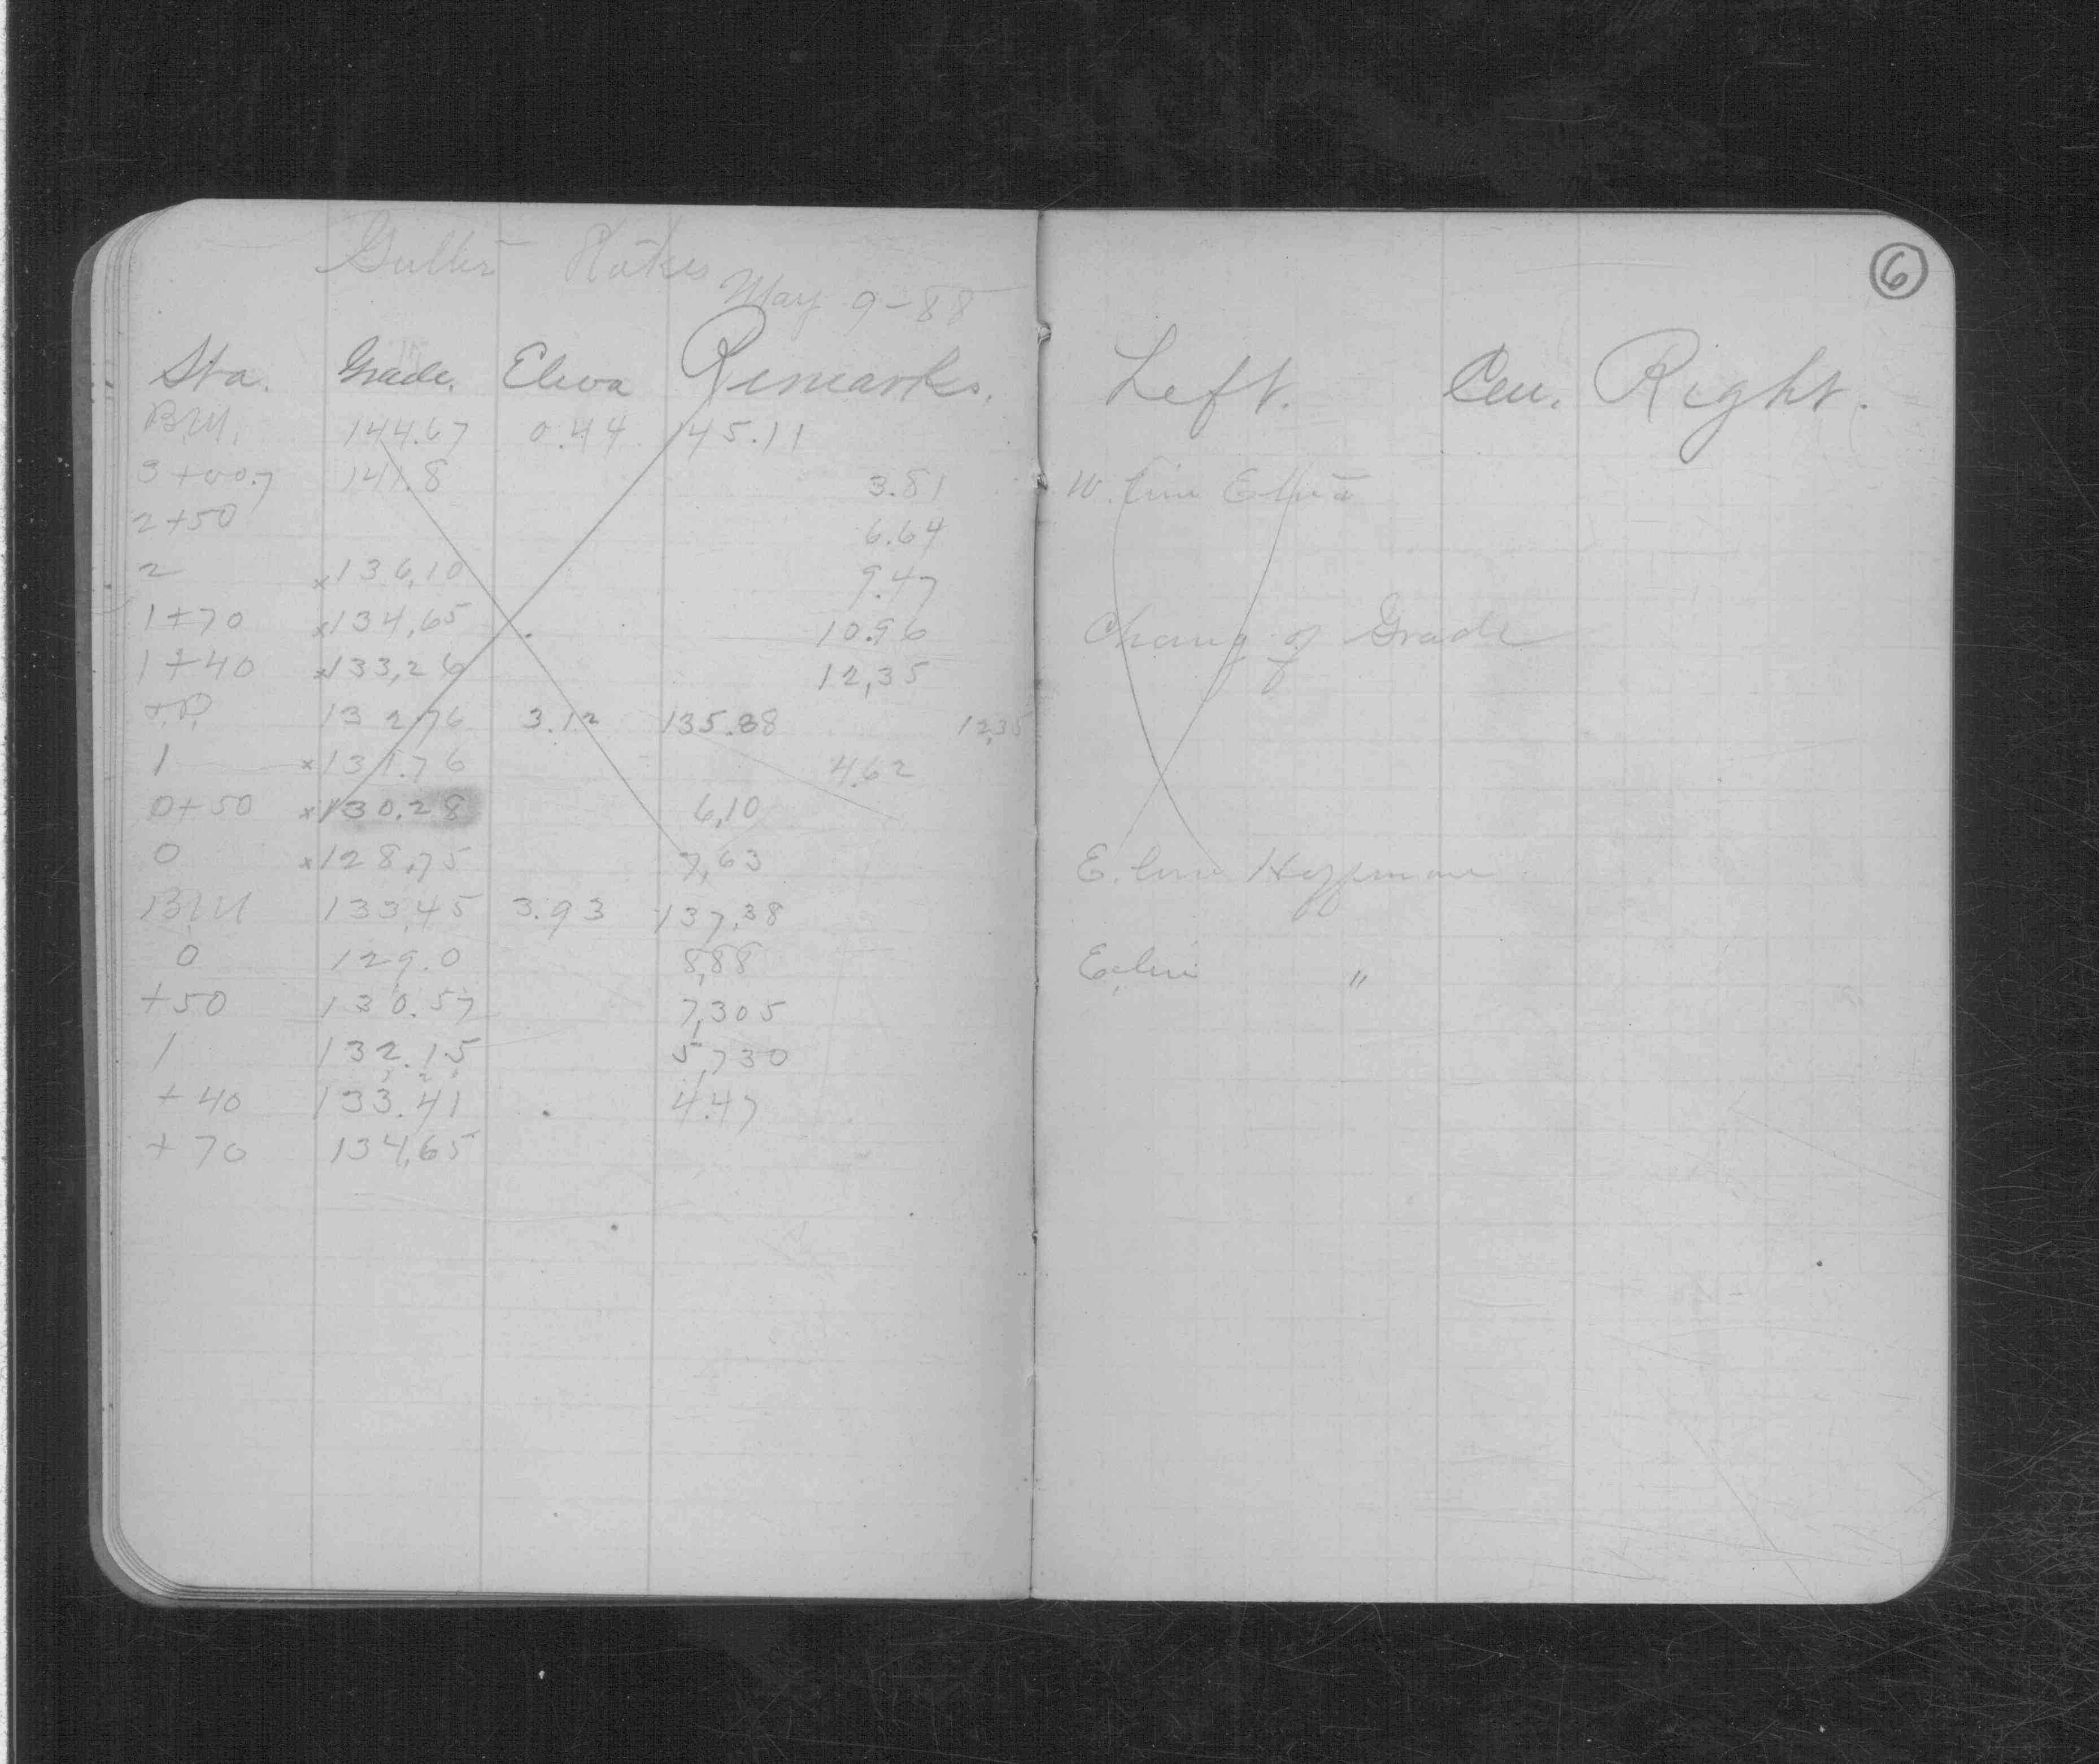 Gutter Stakes
May 9-88
Sta. Grade. Eleva Remarks.
B.M. 144.67 0.44 145.11
3+00.7 141.8 3.31
2+50 6.64
2 x136,10 9.47
1+70 x134,65 10.96
1+40 x133,26 12,35
132.76 3.12 135.88 12,35
1 x131.76 4.62
0+50 x130.28 6,10
0 x128,75 7,63
B.M 133,45 3.93 137,38
0 129.0 8,88
+50 130.57 7,305
1 132.15 5,730
+40 133.41 4.47
+70 134,65
6
Left. Cen. Right.
W. line
Chang of Grade
E. line
E. line "